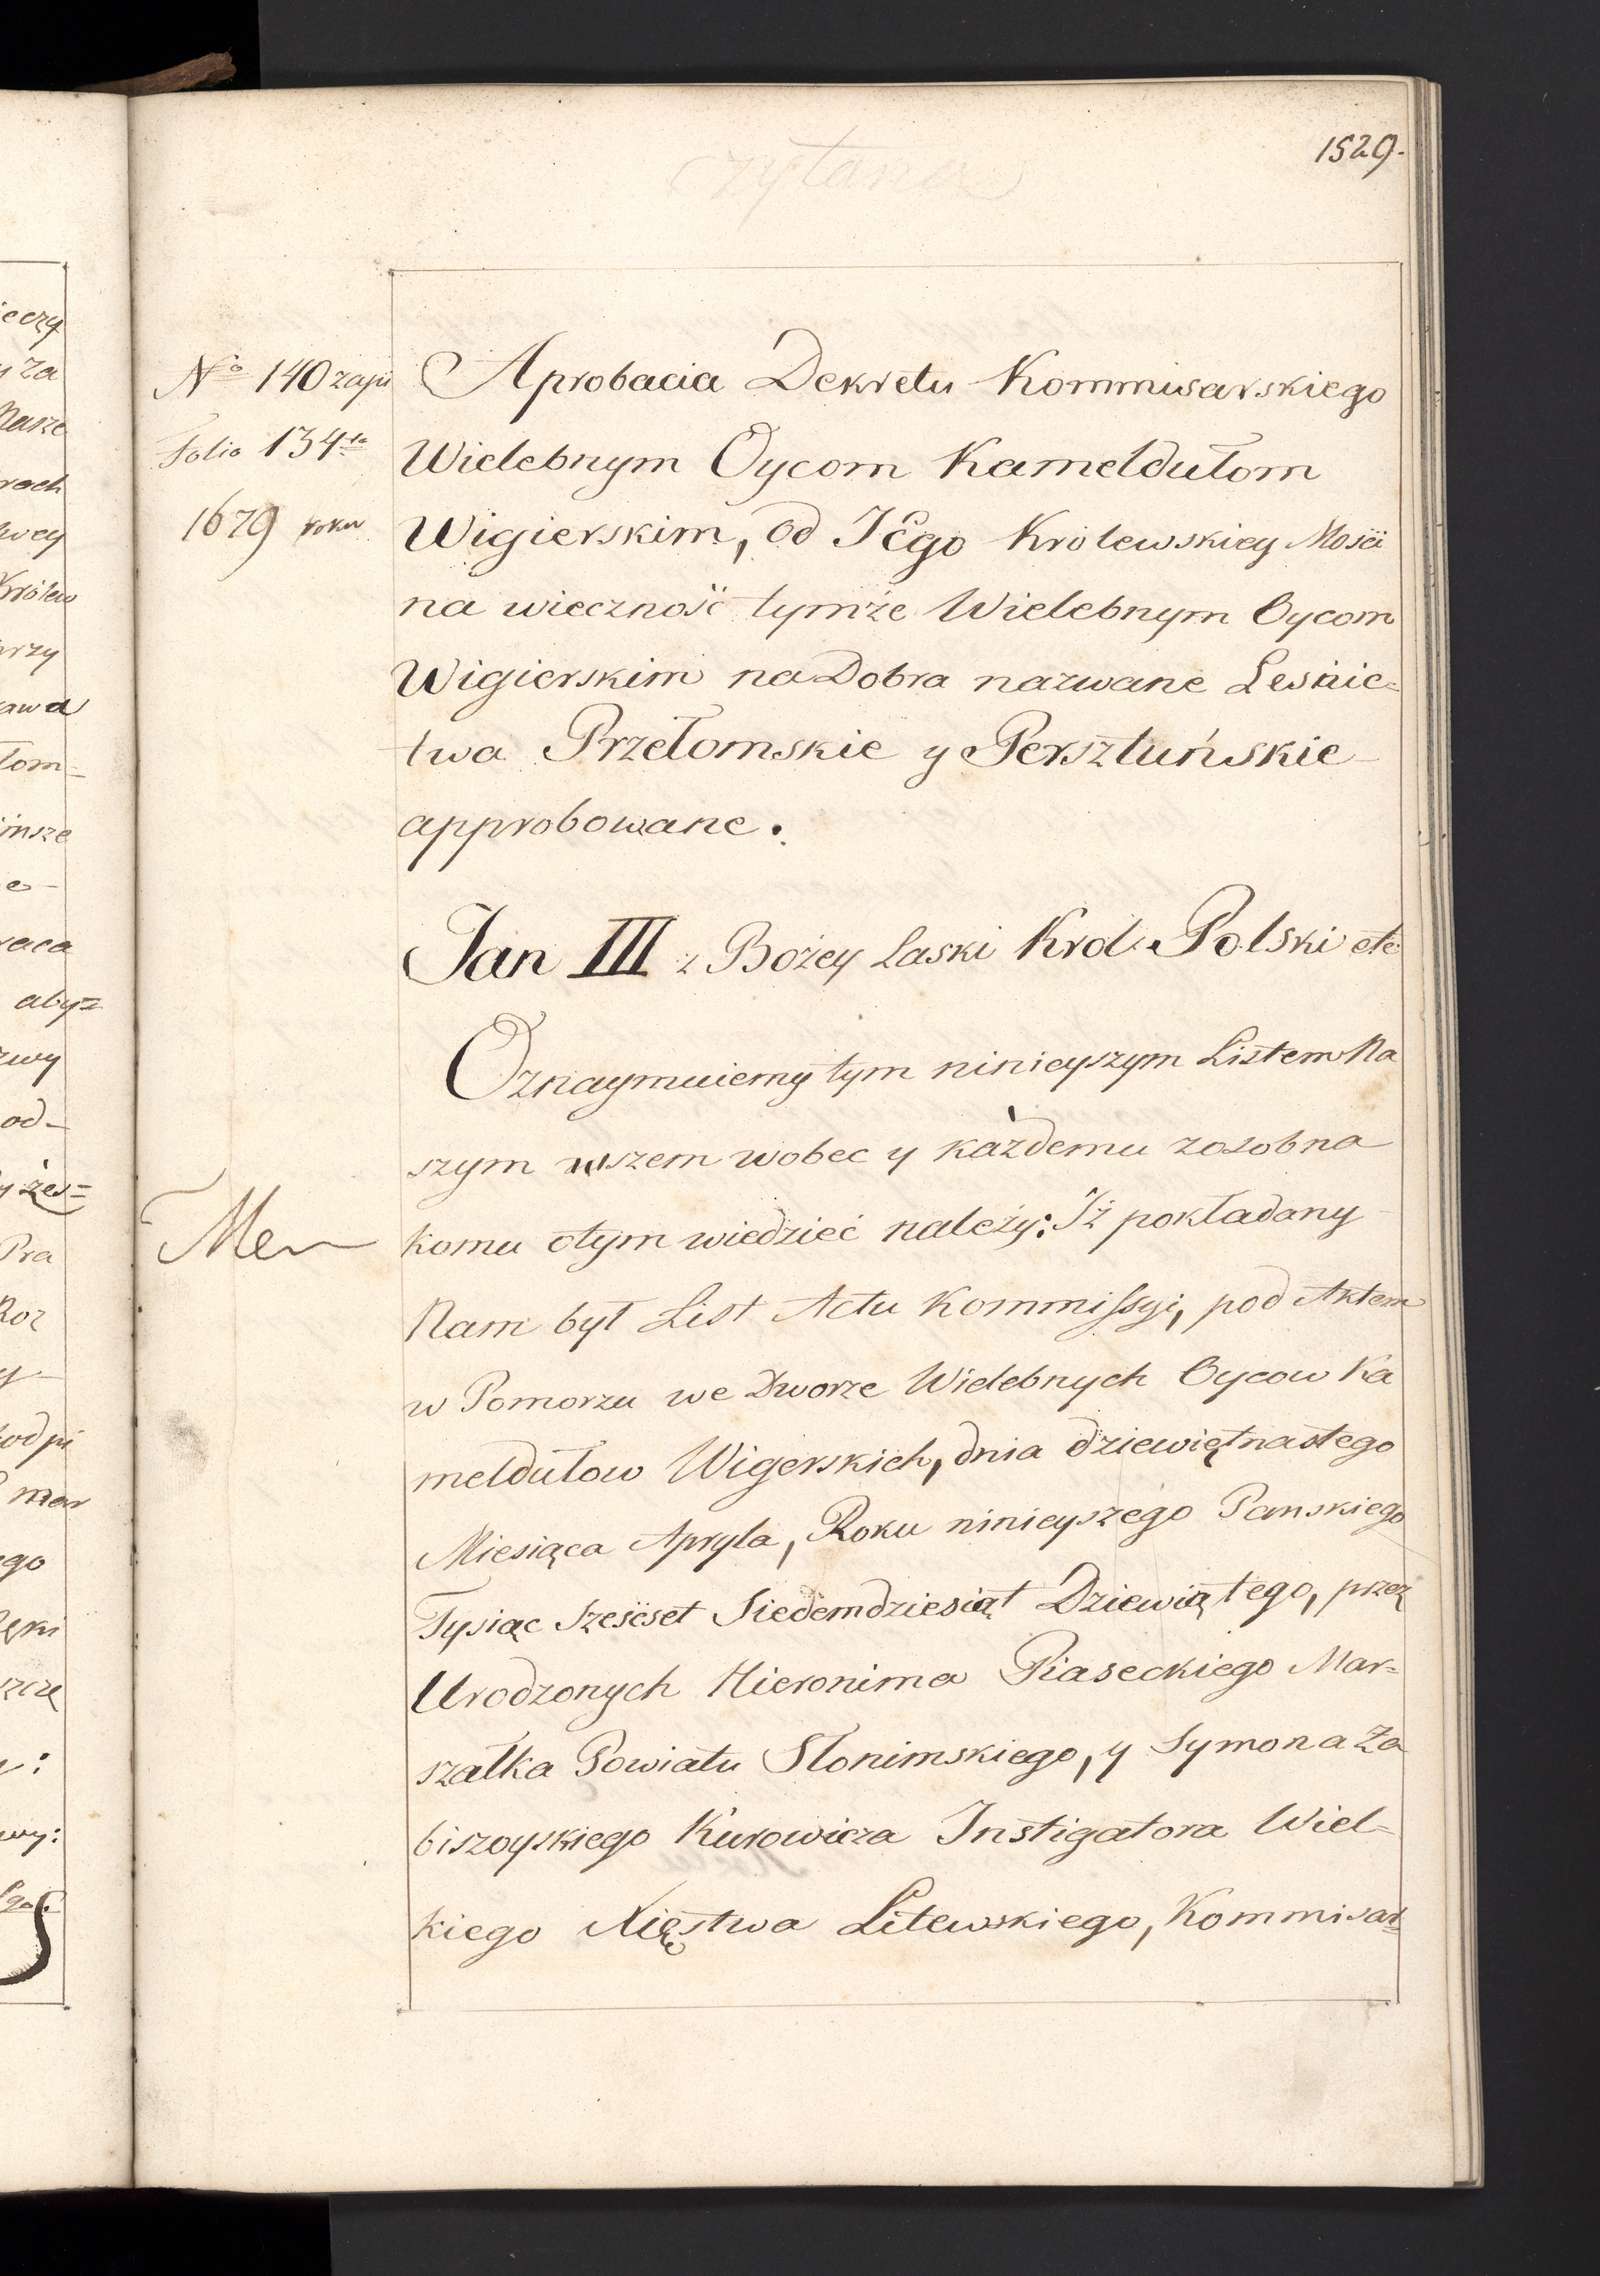 czytana
1529.
No 140 zapis
Folio 134to
1679 roku
Aprobacia Dekretu Kommisarskiego
Wielebnym Oycom Kameldułom
Wigierskim, od JEgo Krolewskiey Mosci
na wieczność tymże Wielebnym Oycom
Wigierskim na Dobra nazwane Lesnic=
twa Przełomskie y Persztuńskie
approbowane.
Jan III z Bożey Łaski Krol Polski etc
Oznaymuiemy tym ninieyszym Listem Na
szym wszem wobec y każdemu zosobna
komu otym wiedzieć należy: Iż pokładany
Men
Nam był List Actu Kommissyi, pod Aktem
w Pomorzu we Dworze Wielebnych Oycow Ka
meldułow Wigerskich, dnia dziewiętnastego
Miesiąca Apryla, Roku ninieyszego Panskiego
Tysiąc Szescset Siedemdziesiąt Dziewiątego, przez
Urodzonych Hieronima Piaseckiego Mar=
szałka Powiatu Słonimskiego, y Symona Za
biszoyskiego Kurowicza Instigatora Wiel=
kiego Xięstwa Litewskiego, Kommisar=
ieczy
y za
Nasze
rach
Krolew
arzy
aby=
od-
Pra
Roz